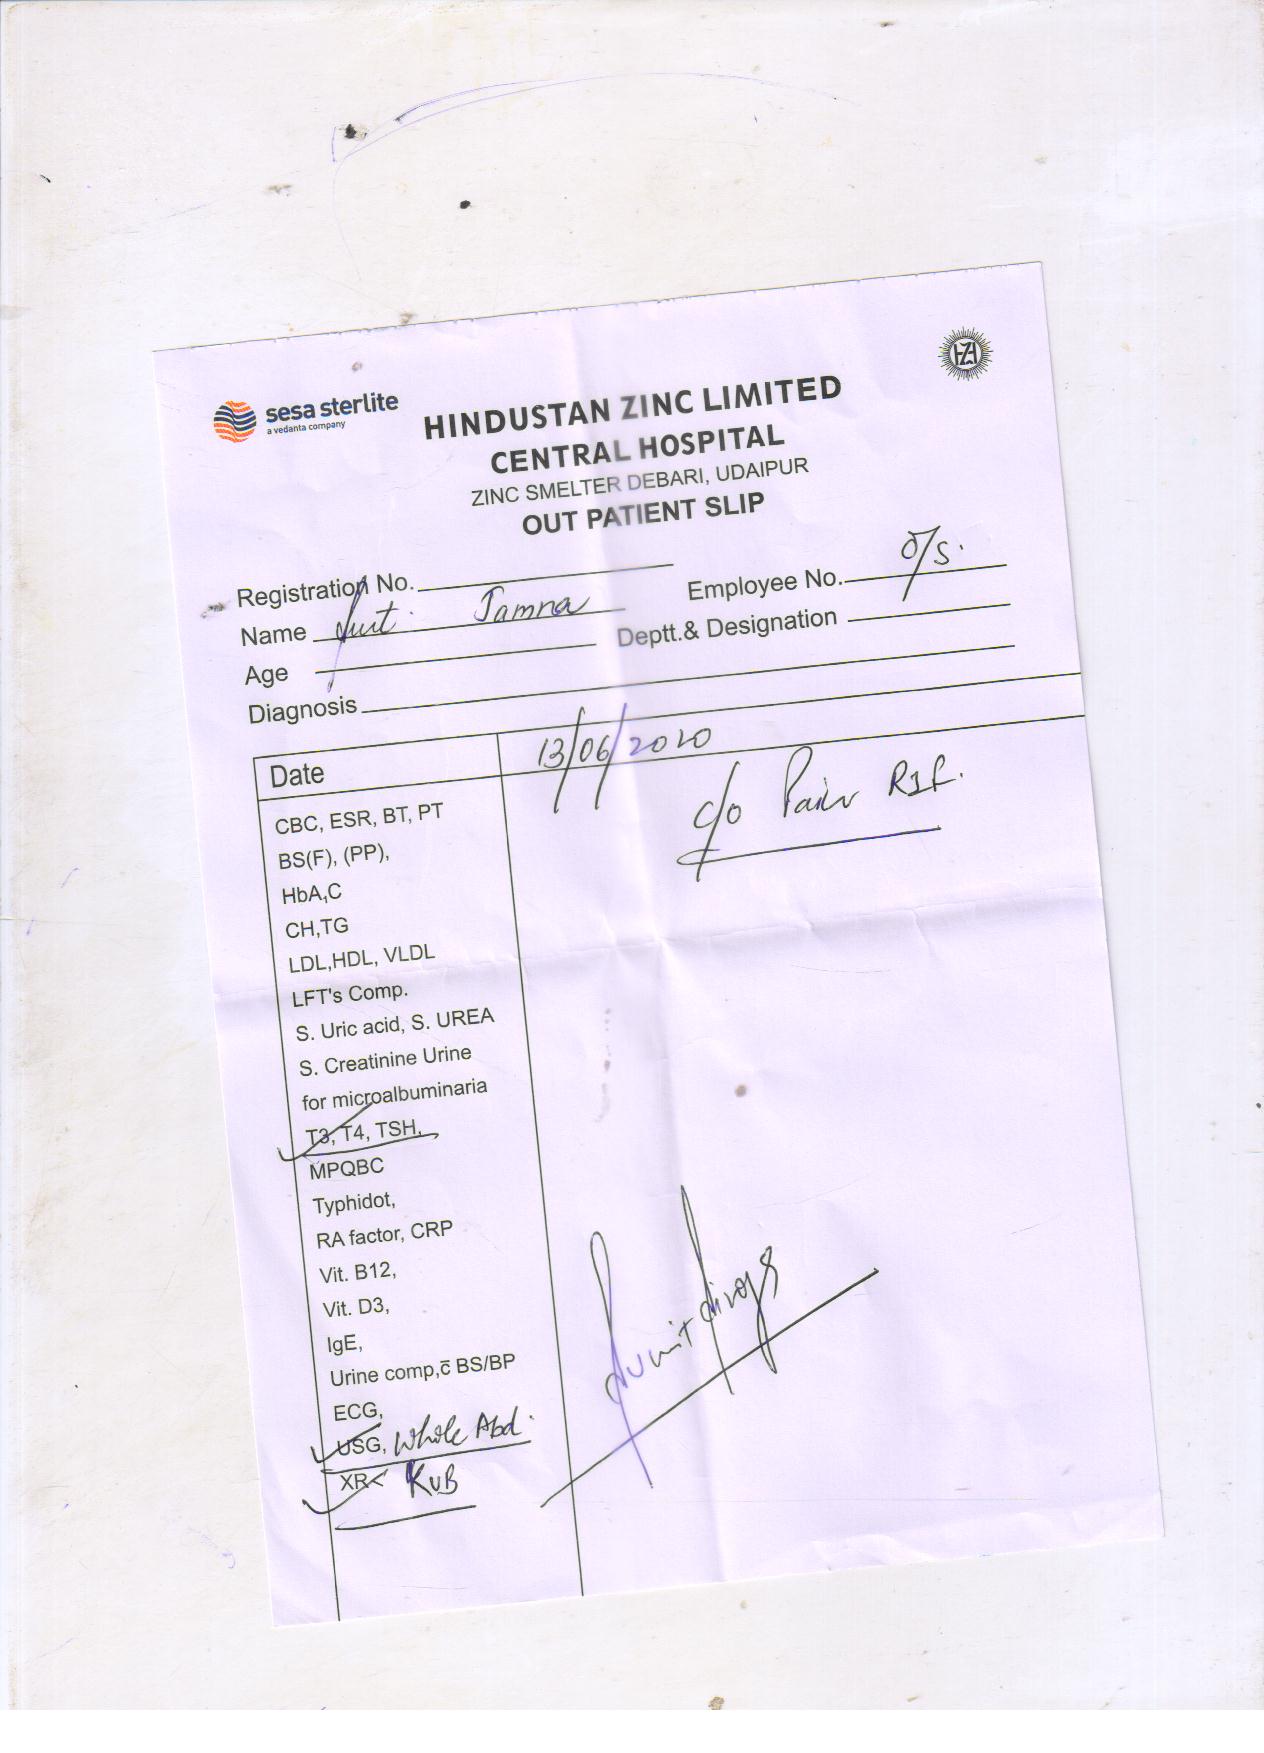 sesa sterlite
a vedanta company
HZL
HINDUSTAN ZINC LIMITED
CENTRAL HOSPITAL
ZINC SMELTER DEBARI, UDAIPUR
OUT PATIENT SLIP
Registration No.
Employee No. O/S.
Name Smt. Jamna
Deptt.& Designation
Age
Diagnosis
Date 13/06/2020
c/o Pain RIF.
CBC, ESR, BT, PT
BS(F), (PP),
HbA,C
CH,TG
LDL,HDL, VLDL
LFT's Comp.
S. Uric acid, S. UREA
S. Creatinine Urine
for microalbuminaria
T3, T4, TSH,
MPQBC
Typhidot,
RA factor, CRP
Vit. B12,
Vit. D3,
IgE,
Urine comp,c̄ BS/BP
ECG,
USG, Whole Abd.
XR KUB
Sumit